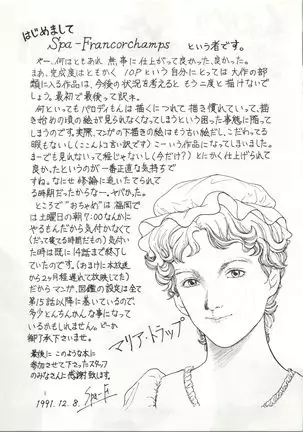 はじめまして
Spa-Francorchamps という者です。
やー、何はともあれ、無事に仕上がって良かった、良かった。
まあ、完成度はともかく 10Pという自分にとっては大作の部
類に入る作品は、今後の状況を考えると もう二度と描けないで
しょう。最初で最後って訳ネ。
何といってもパロディもんは描くにつれて描き慣れていって、描
き始めの頃の絵が見られなくなってしまうという困った事態に陥って
しまうのです。実際、マンガの下描きの絵はもう古い絵だし、こだわってる
暇もないし(ここん所古古訳です)こーいう作品になってしまいました。
まーでも見れないって程じゃないし(今だけ?)とにかく仕上げられて
良かったというのが一番正直な気持ちで
すね。なにせ修論に追いたてられて
る時期だったからなー、ヤバかった。
ところで"おちゃめ"は福岡で
は土曜日の朝7:00なんかに
やるもんだから気付かなくて
(だって寝てる時間だもの)気付い
た時は既に14話まで終了し
ていたのです。(おまけに本放送
から2ヶ月程遅れで放映してた)
だからマンガ、図鑑の設定は全て
第15話以降に基いているので、
多少とんちんかんな事になって
いるかもしれません。どーか
御了承下さいませ。
最後に このような本に
参加させて下さったスタッフ
のみなさんに感謝致します。
1991.12.8. Spa-F
マリア・トラップ